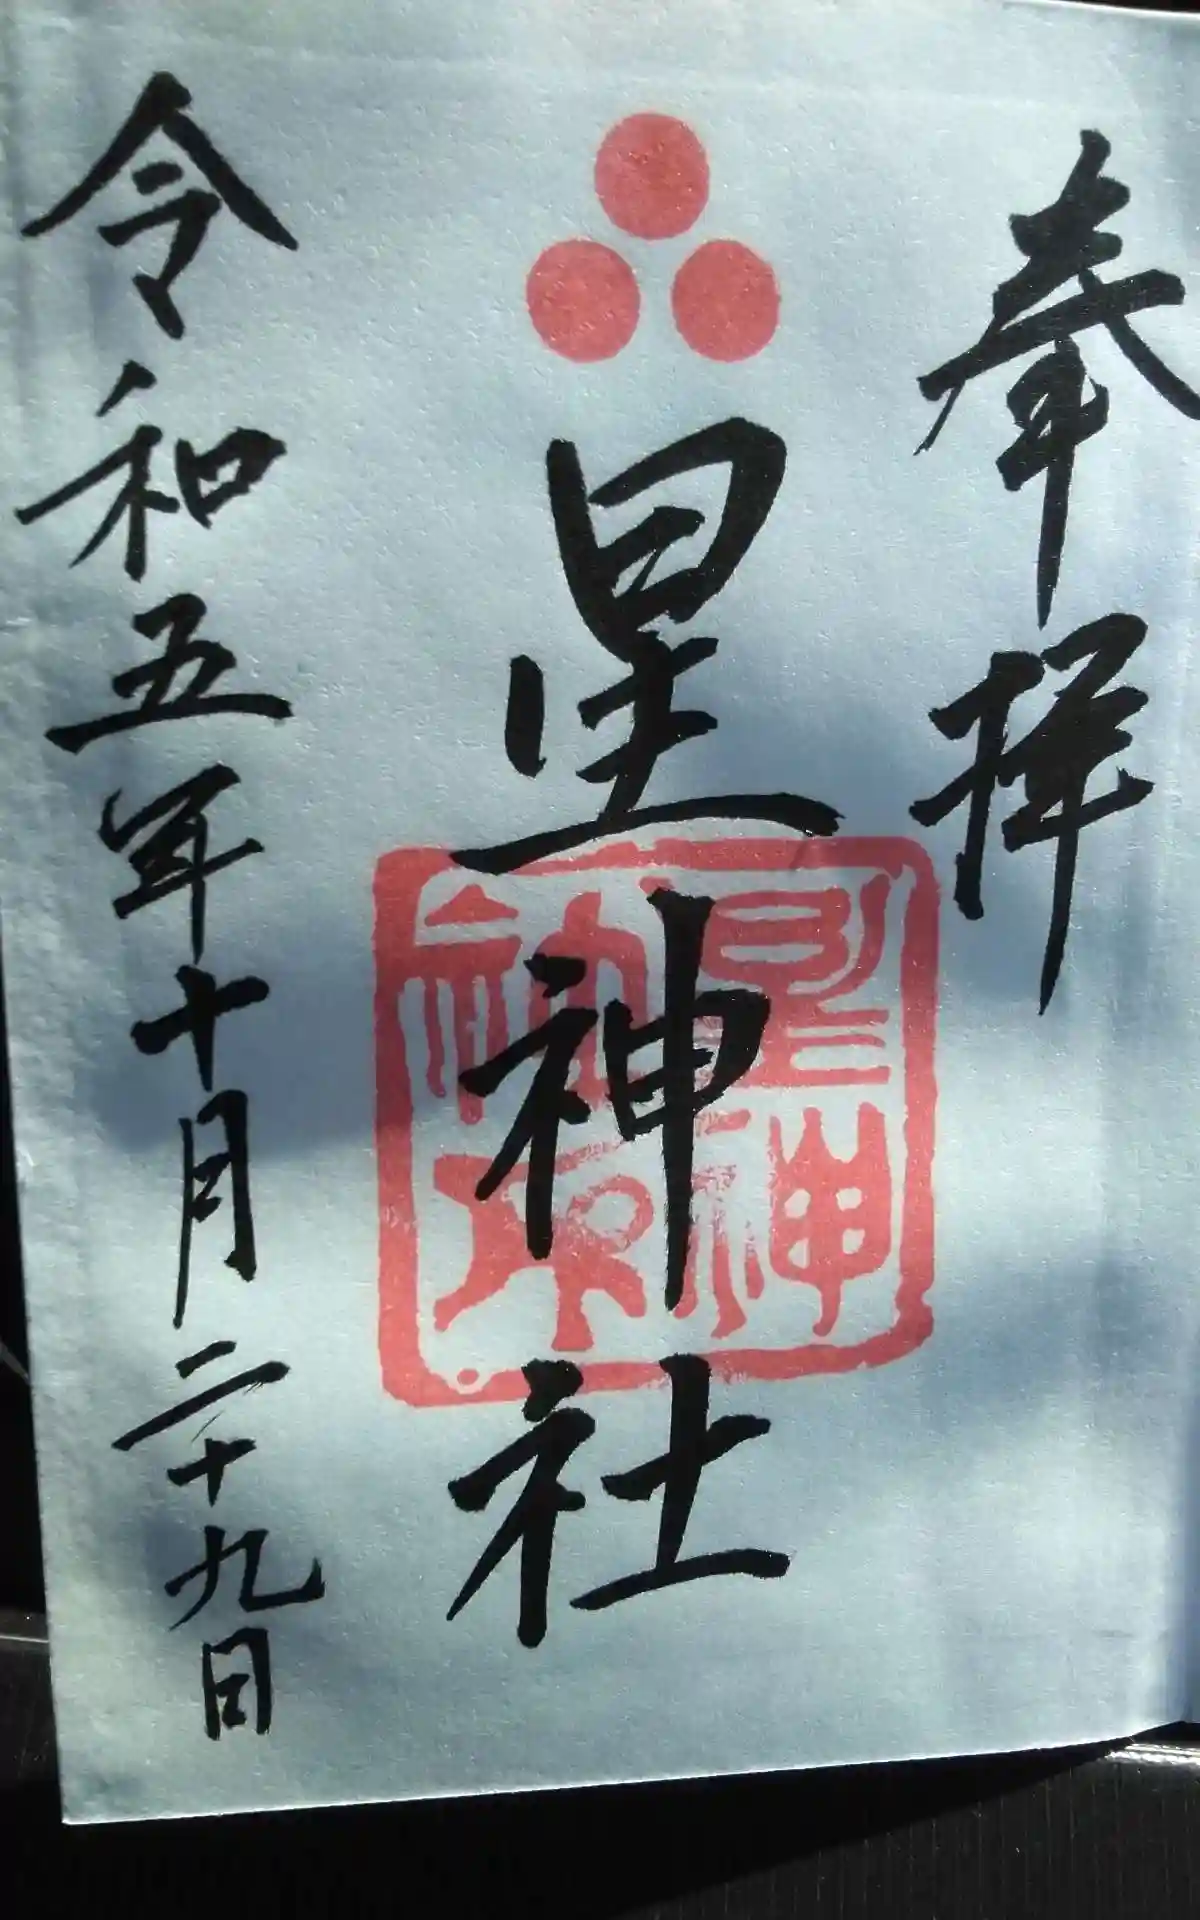 奉拝
星神社
星神社印
令和五年十月二十九日